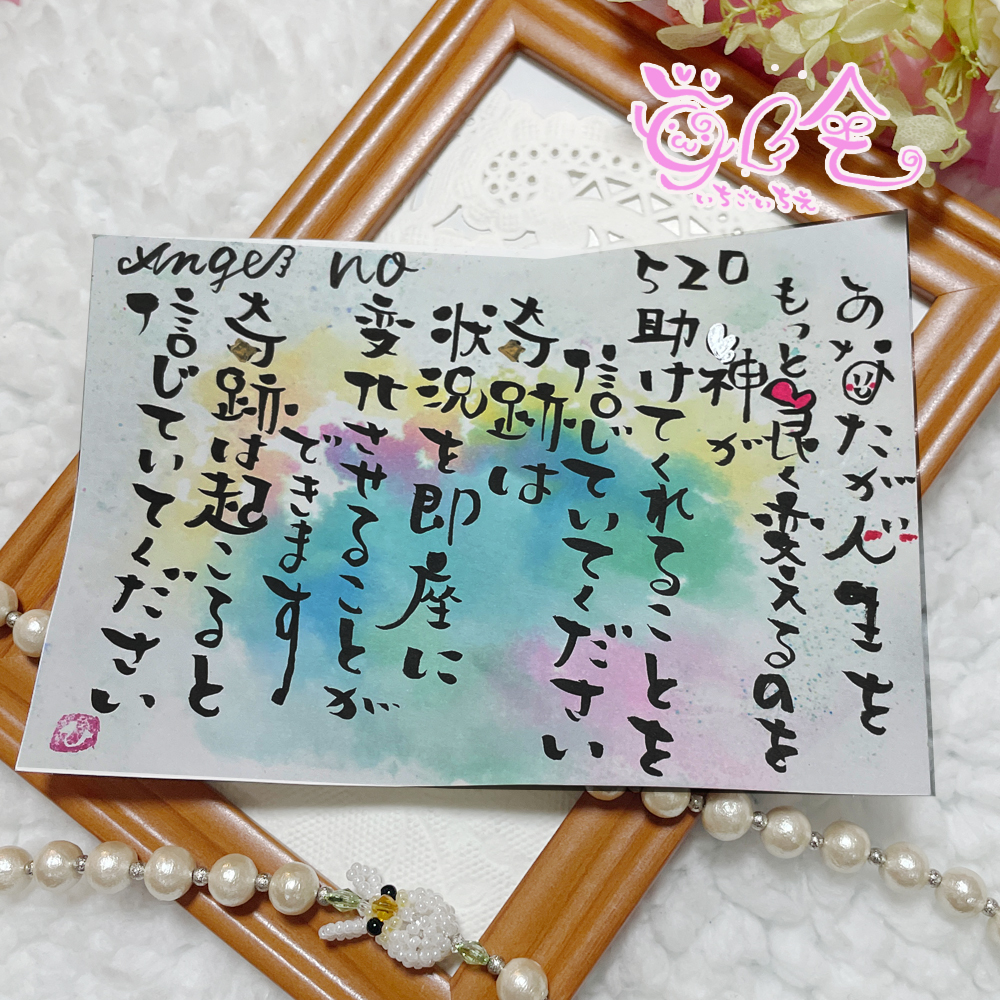 Angel no
520
あなたが人生を
もっと良く変えるのを
神が
助けてくれることを
信じていてください
奇跡は
状況を即座に
変化させることが
できます
奇跡は起こると
信じていてください
いちごいちえ